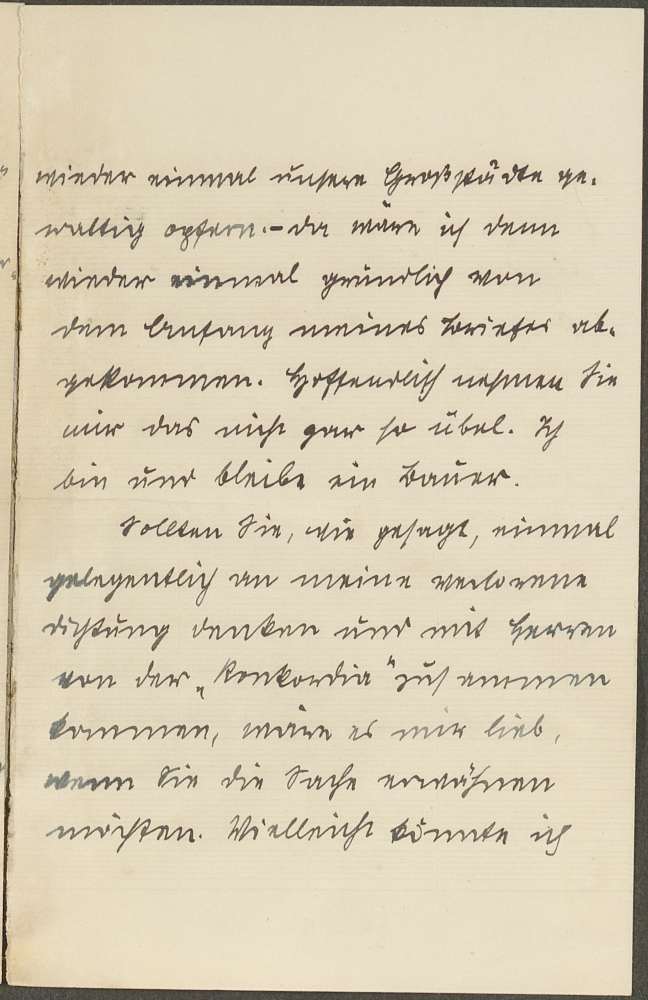 wieder einmal unsere Großstädte ge-
waltig opfern. – da wäre ich denn
wieder einmal gründlich von
dem Anfang meines Briefes ab-
gekommen. Hoffendlich nehmen Sie
mir das nicht gar so übel. Ich
bin und bleibe ein Bauer.
Sollten Sie, wie gesagt, einmal
gelegentlich an meine verlorene
Dichtung denken und mit Herren
von der „Konkordia" zusammen
kommen, wäre es mir lieb,
wenn Sie die Sache erwähnen
möchten. Vielleicht könnte ich